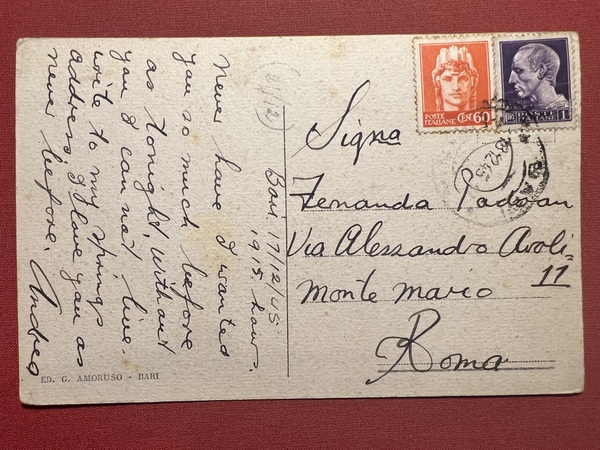 Bari, 17/12/45
1915 hour.
Never have I wanted
you so much before
as tonight, without
you I can not live.
write to my
address I love you as
never before. Andrea
(2/12)
ED. G. AMORUSO - BARI
POSTE ITALIANE CENT. 60
LIRE 1
13.12.45
Signa
Fernanda Padoan
Via Alessandro Avoli=
11
Monte Mario
Roma